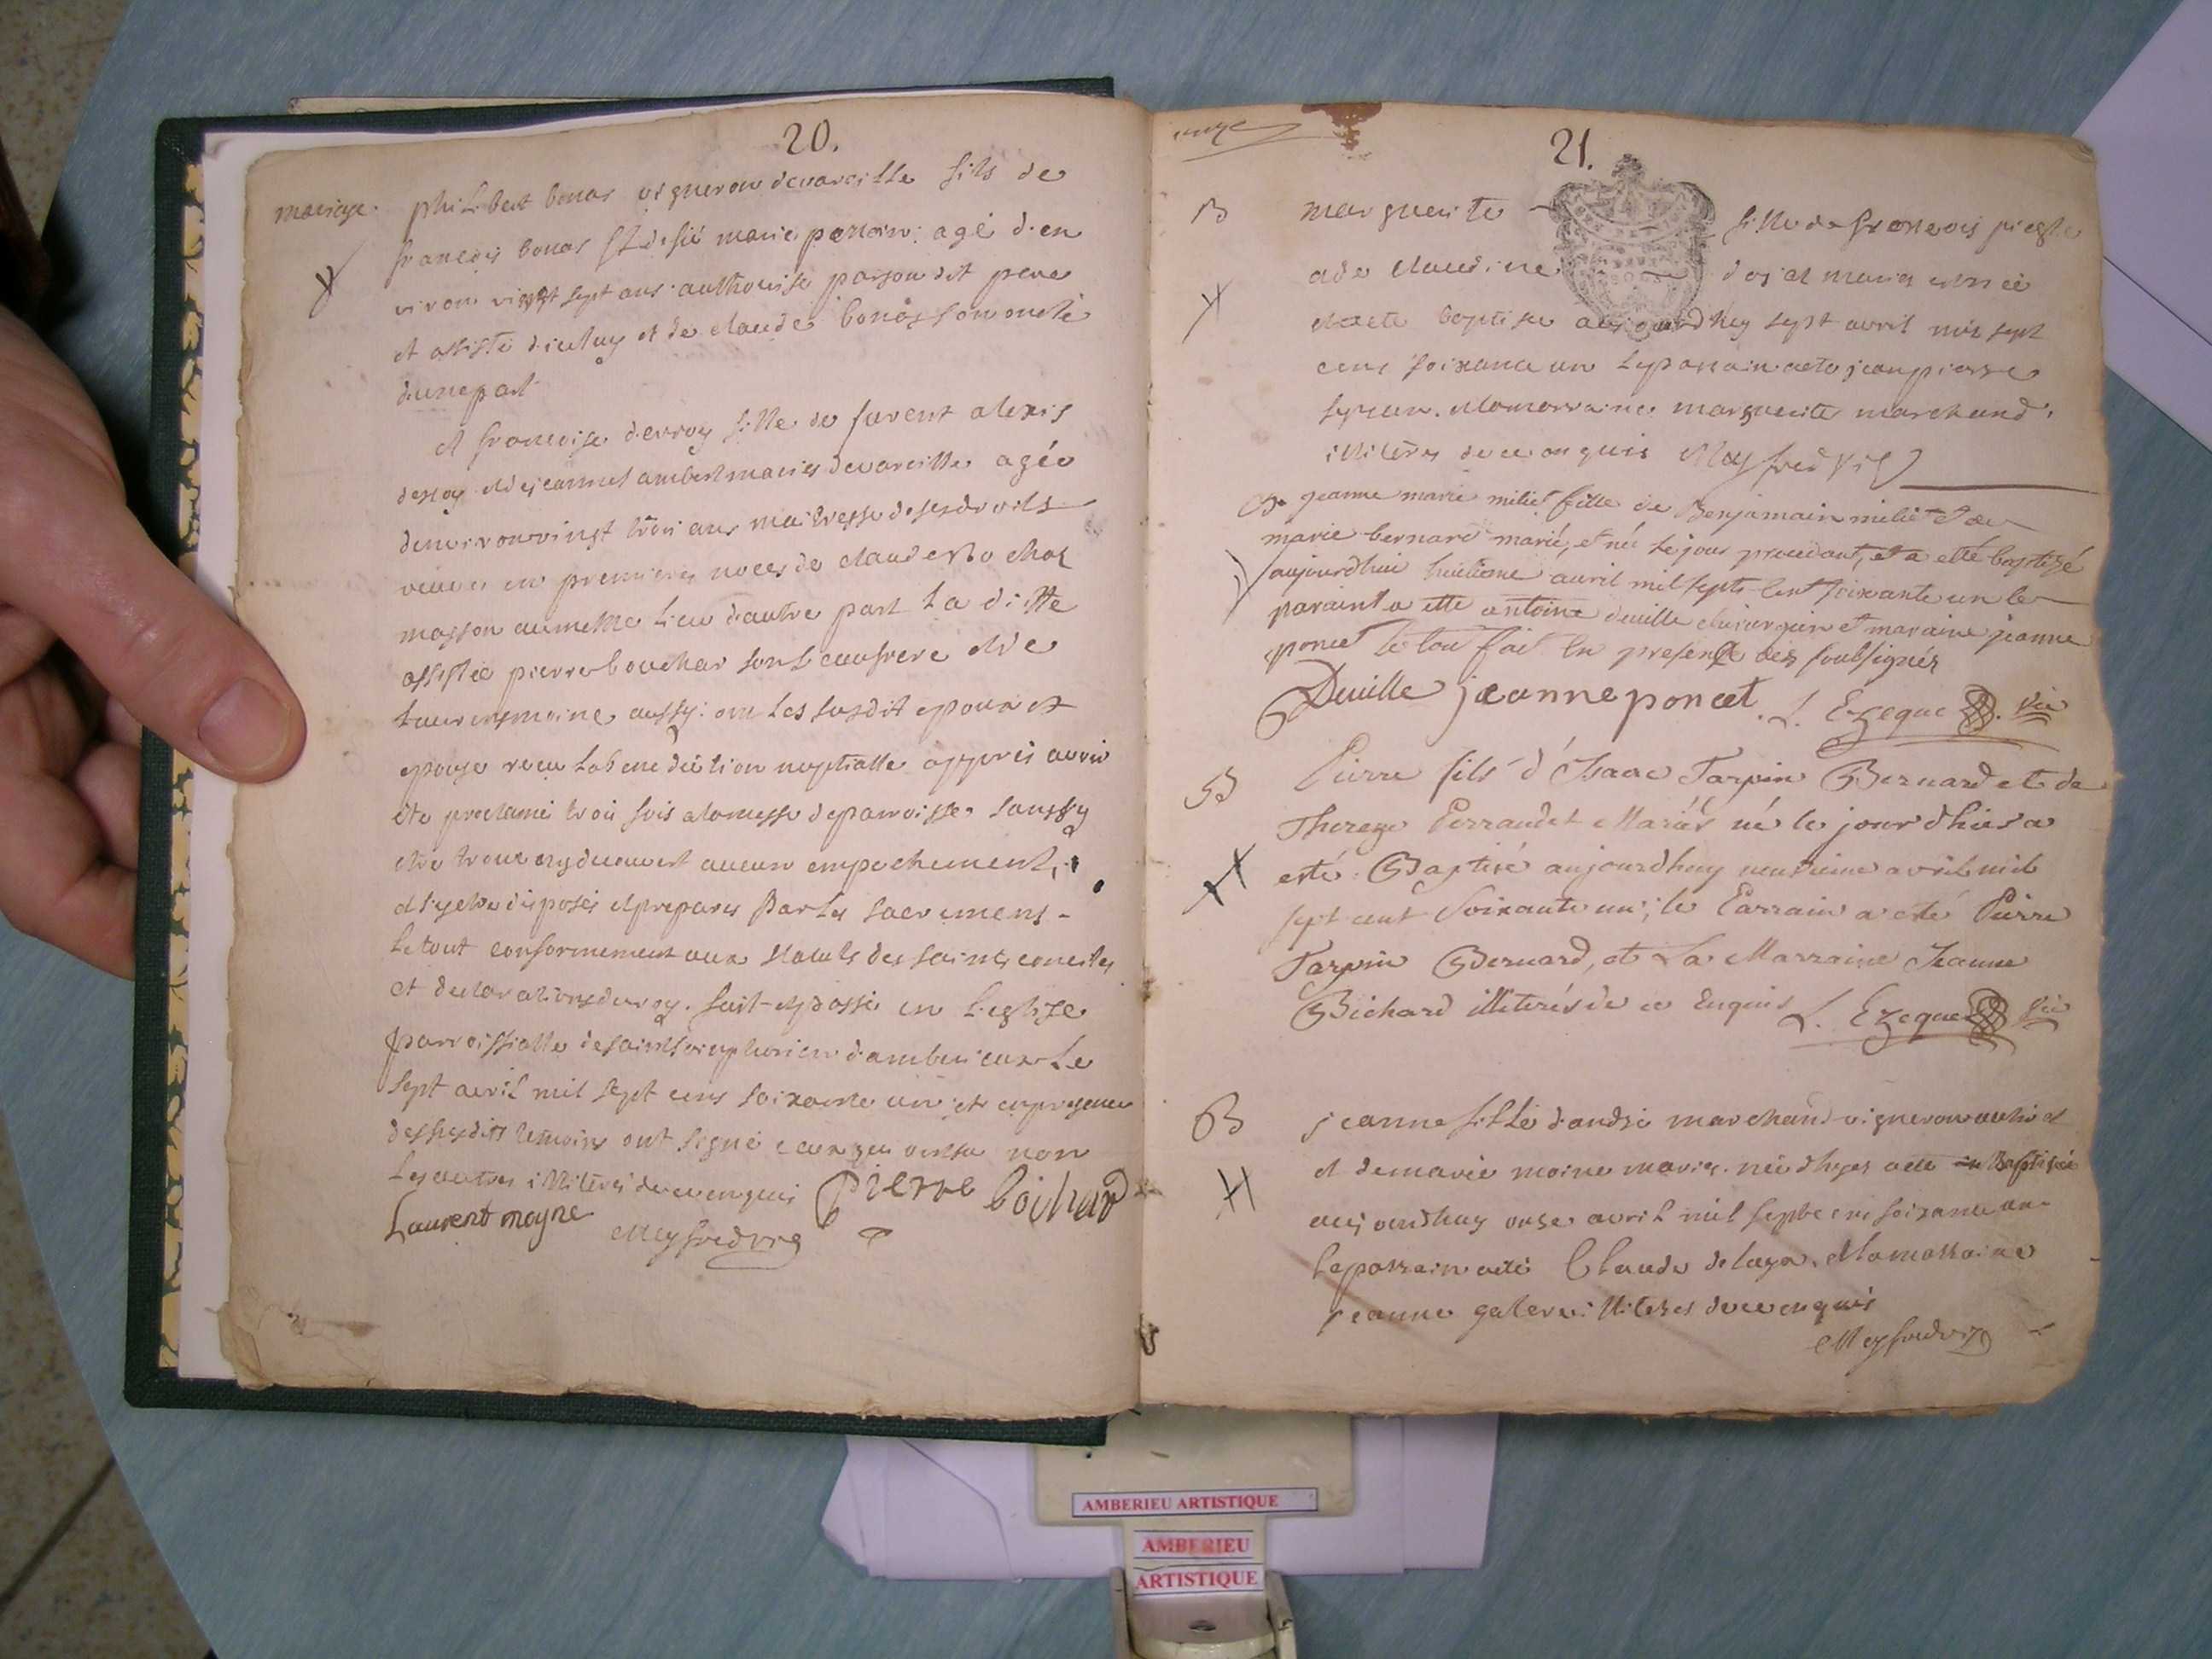 20.
mariage. philibert bonas vigneron devareille fils de
francois bonas marie agé d'en
viron vingt sept ans authorise par son dit pere
et assisté d'iceluy et de claude bonas son oncle
d'une part
et francoise derroy fille de alexis
derroy et de jeanne lambert mariés devareille agée
d'environ vingt trois ans maitresse de ses droits
veuve en premieres noces de claude
masson au meme lieu d'autre part la ditte
assistée pierre bouchar
laurens moine aussy: ont les susdit epoux et
epouse recu la benediction nuptialle apprès avoir
été proclamé trois fois a la messe de parroisse sans sy
etre trouvé ny decouvert aucun empechement,
et s'y etre disposés et preparés par les sacremens -
le tout conformement aux statuts des saints conciles
et declarations du roy. fait et passé en l'eglise
parroissialle de saint simphorien d'ambericux le
sept avril mil sept cens soixante un et en presence
des susdits temoins ont signé ceux qui ont su non
les autres illiterés de ce enquis Pierre boichard
Laurent moyne
21.
B marguerite fille de francois
et de claudine mariés née
et a eté baptisée aujourd'huy sept avril mil sept
cens soixante un le parrain a eté jean pierre
et la marraine marguerite marchand.
illiterés de ce enquis
B. jeanne marie miliet fille de Benjamain miliet et de
marie bernard marié, et née le jour precedant, et a etté baptizé
aujourdhui huitieme avril mil septs cent soixante un le
paraint a etté antoine deville chirurgien et maraine jeanne
poncet le tout fait en presence des soubsignés
Deville jeanne poncet. L. Ezeque vic
B Pierre fils d'Isaac Tarpin Bernard et de
Thereze Perraudet Mariés né le jour d'hier a
esté Baptisé aujourdhuy neuvieme avril mil
sept cent soixante un; le Parrain a eté Pierre
Tarpin Bernard, et La Marraine Jeanne
Bichard illiterés de ce Enquis L. Ezeque vic
B jeanne fille d'andré marchand vigneron
et de marie moine mariés. née d'hyer a eté Baptisée
aujourdhuy onze avril mil sept cens soixante un
le parrain a eté Claude delaya. et la marraine
jeanne illiterés de ce enquis
AMBERIEU ARTISTIQUE
AMBERIEU
ARTISTIQUE